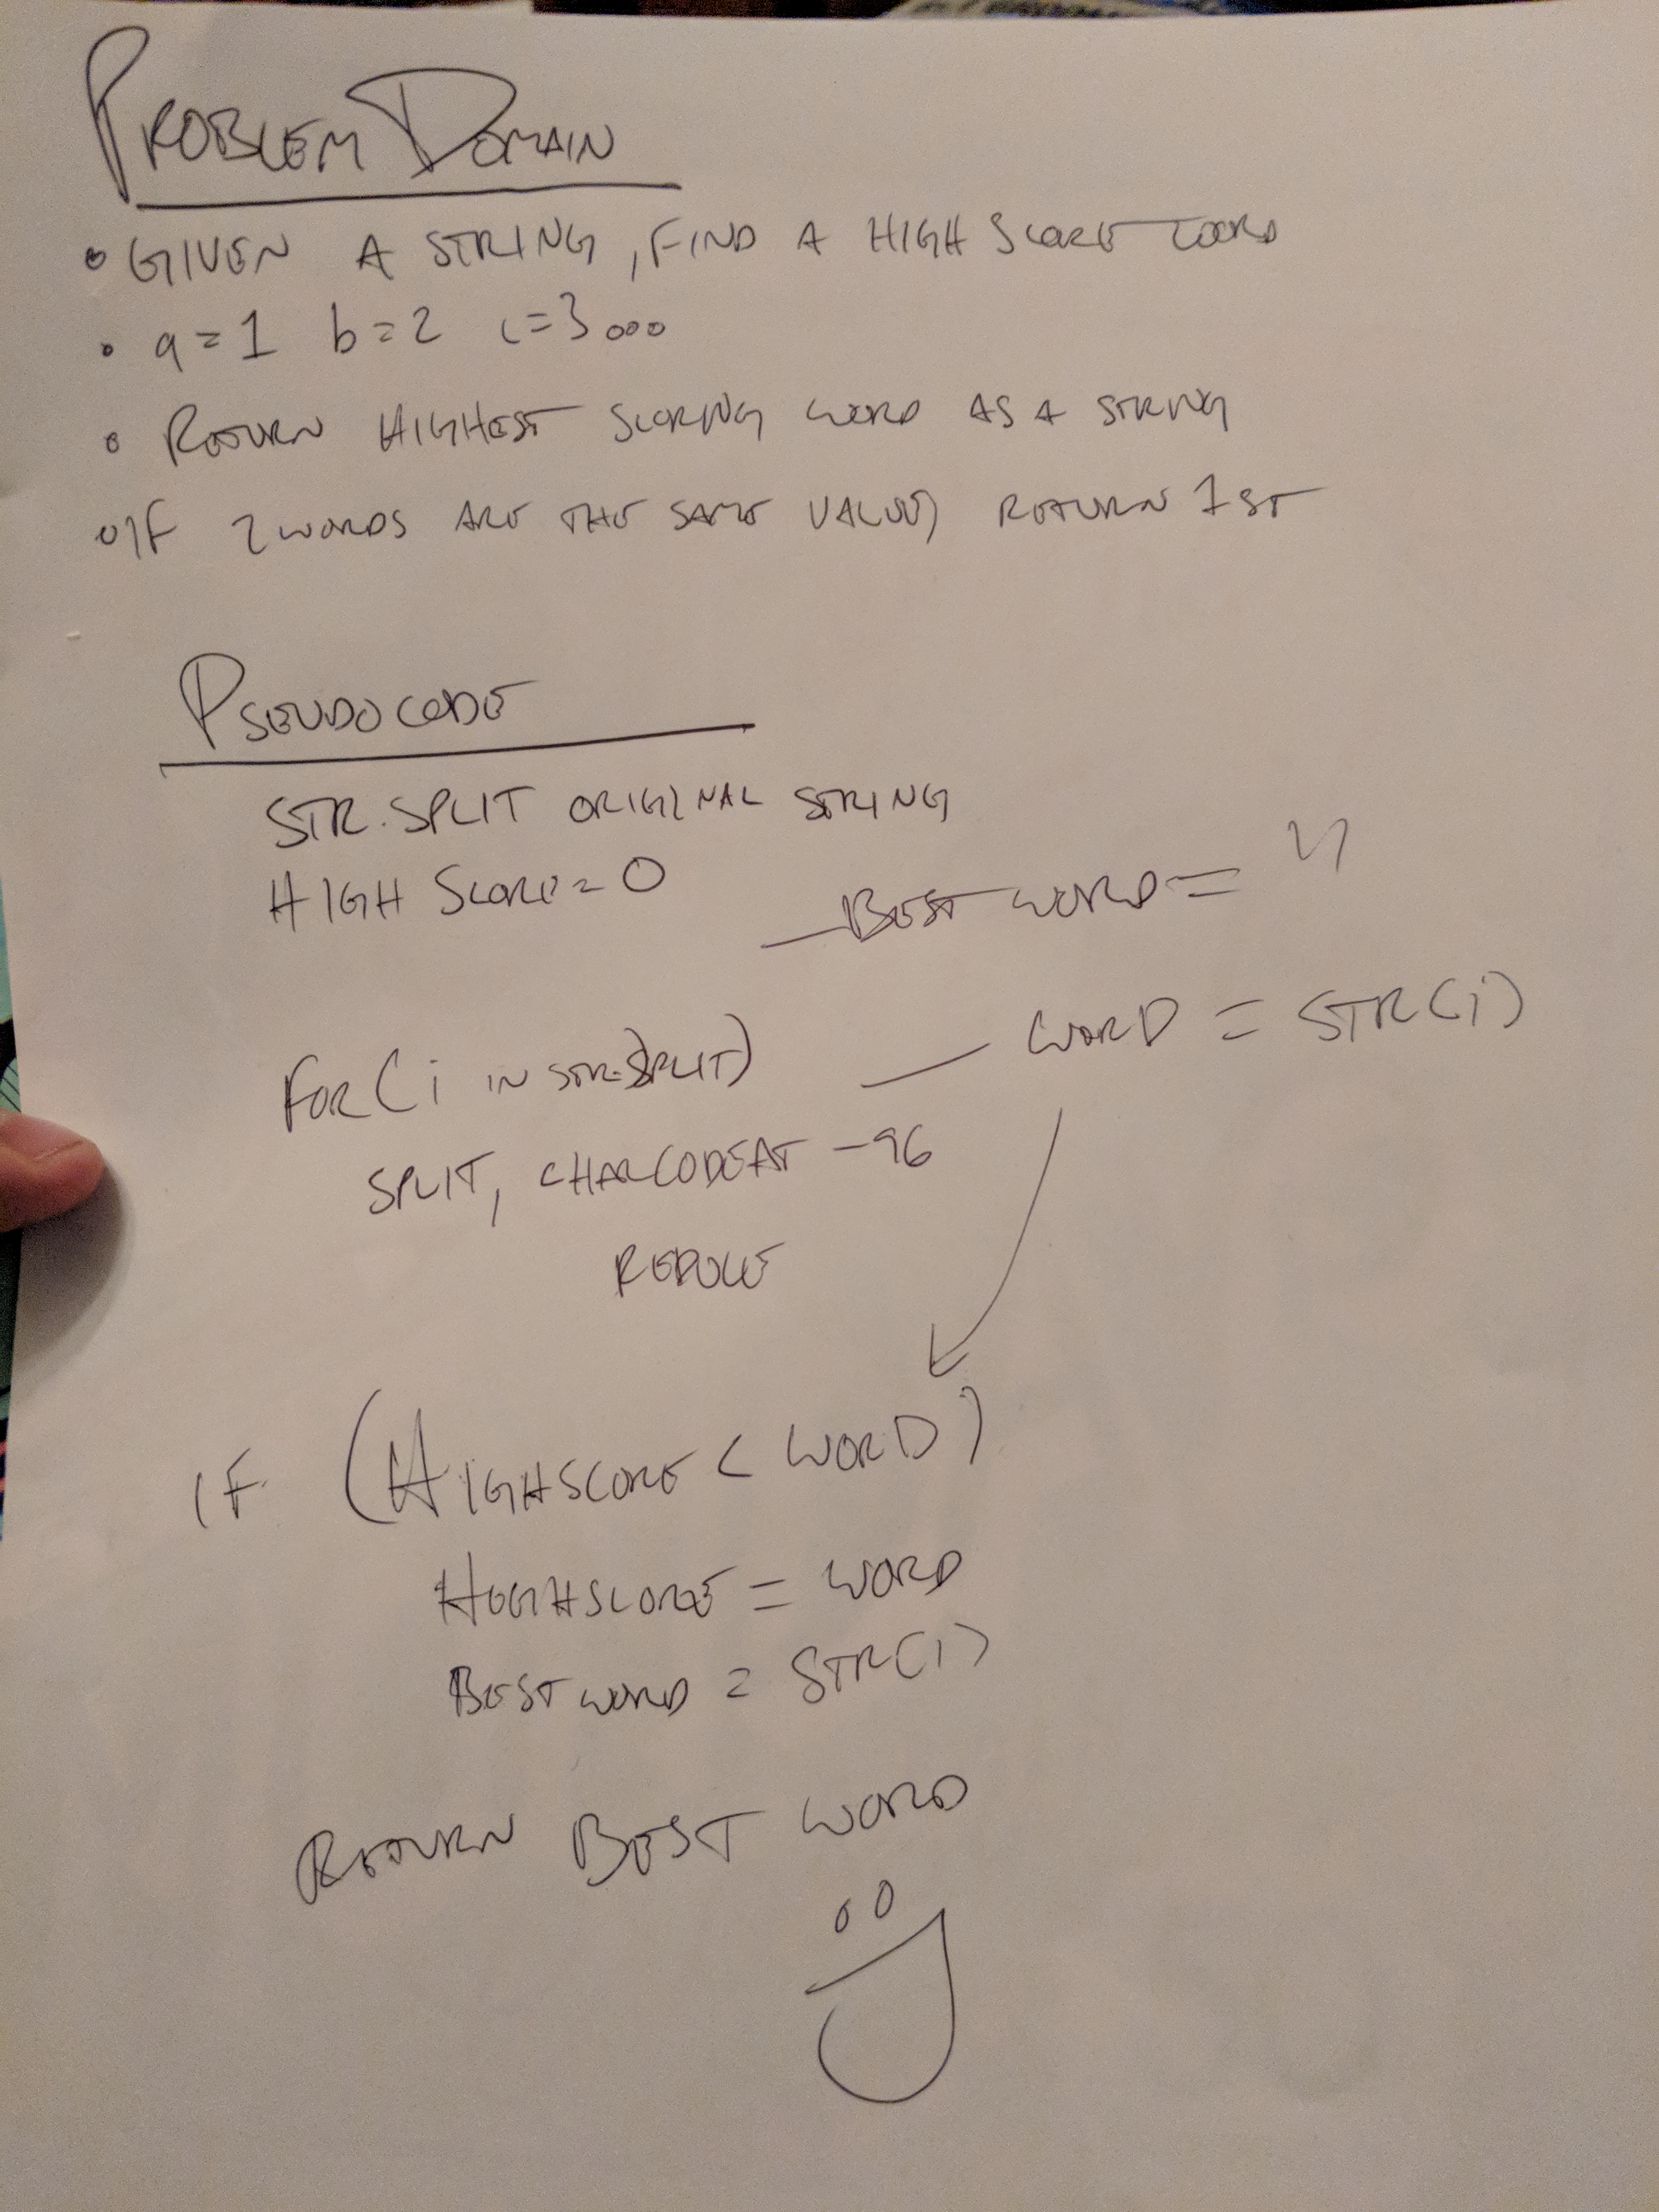 PROBLEM DOMAIN
• GIVEN A STRING, FIND A HIGH SCORE WORD
• a=1 b=2 c=3 ooo
• RETURN HIGHEST SCORING WORD AS A STRING
• IF 2 WORDS ARE THE SAME VALUE, RETURN 1ST
PSEUDOCODE
STR.SPLIT ORIGINAL STRING
HIGH SCORE = 0
— BEST WORD = ''
FOR (i IN STR.SPLIT) — WORD = STR(i)
SPLIT, CHARCODEAT -96
REDUCE
IF (HIGHSCORE < WORD)
HIGHSCORE = WORD
BEST WORD = STR(i)
RETURN BEST WORD